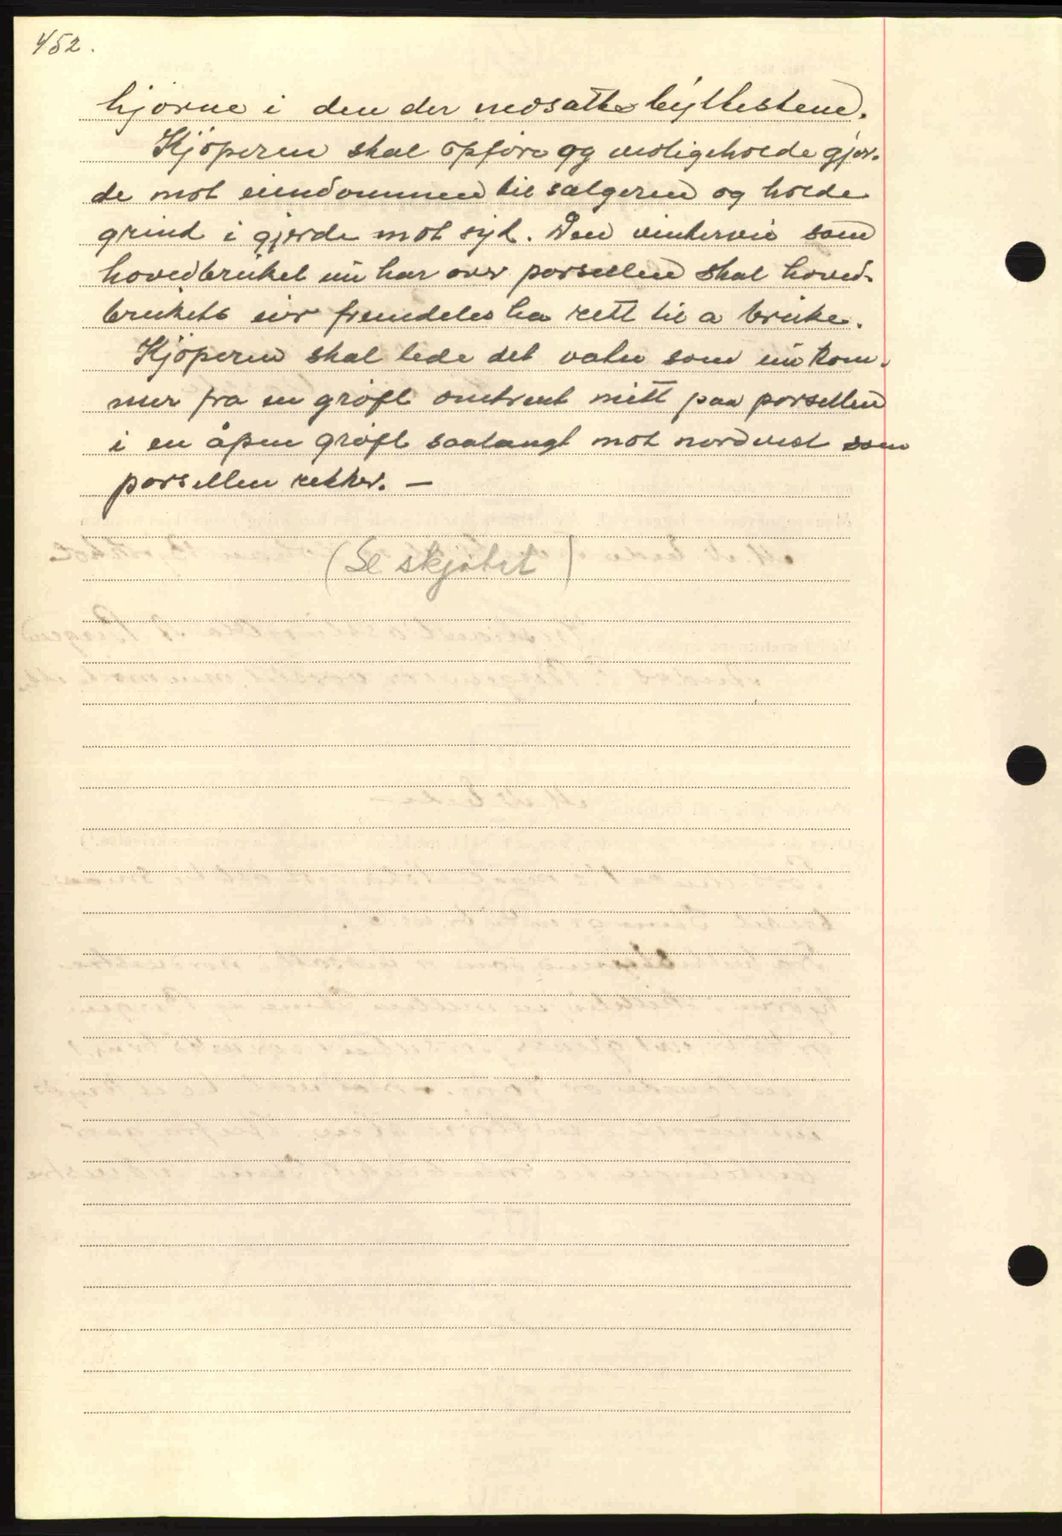 452.
hjørne i den der nedsatte byttesten.
Kjøperen skal opføre og vedligeholde gjer-
de mot eiendommen til sælgeren og holde
grind i gjerde mot syd. Den vintervei som
hovedbruket nu har over parsellen skal hoved-
brukets eier fremdeles ha rett til a bruke.
Kjøperen skal lede det vatn som nu kom-
mer fra en grøft omtrent mitt paa parsellen
i en åpen grøft saalangt mot nordvest som
parsellen rekker. —
(Se skjøtet)